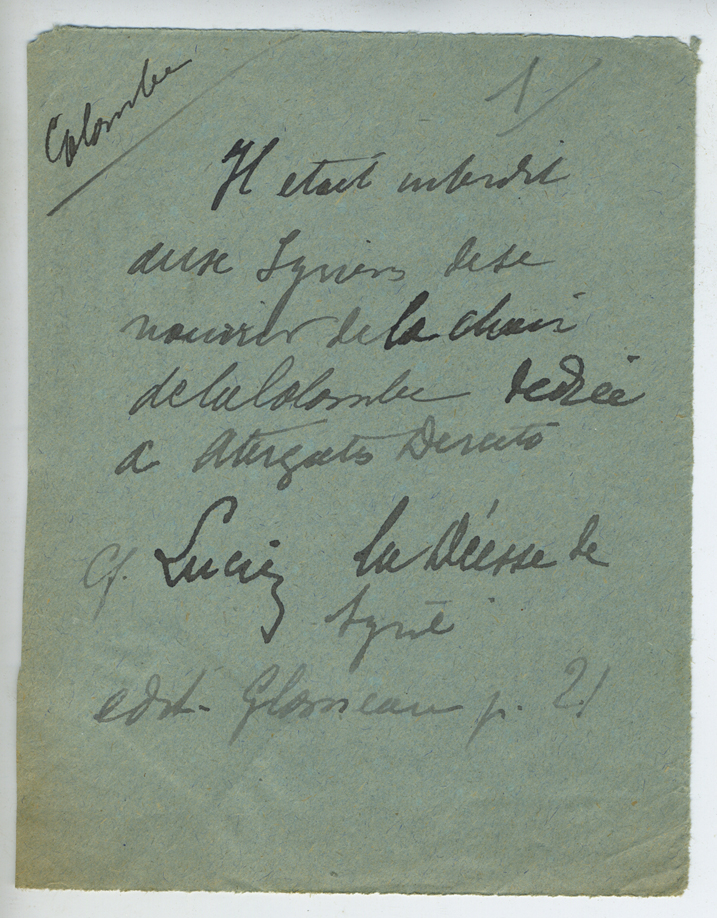 Colombe
1/
Il etait interdit
aux Syriens de se
nourrir de la chair
de la Colombe dediée
a Atergatis Derceto
Cf. Lucien la Déesse de
Syrie
edit. Glomeau p. 21